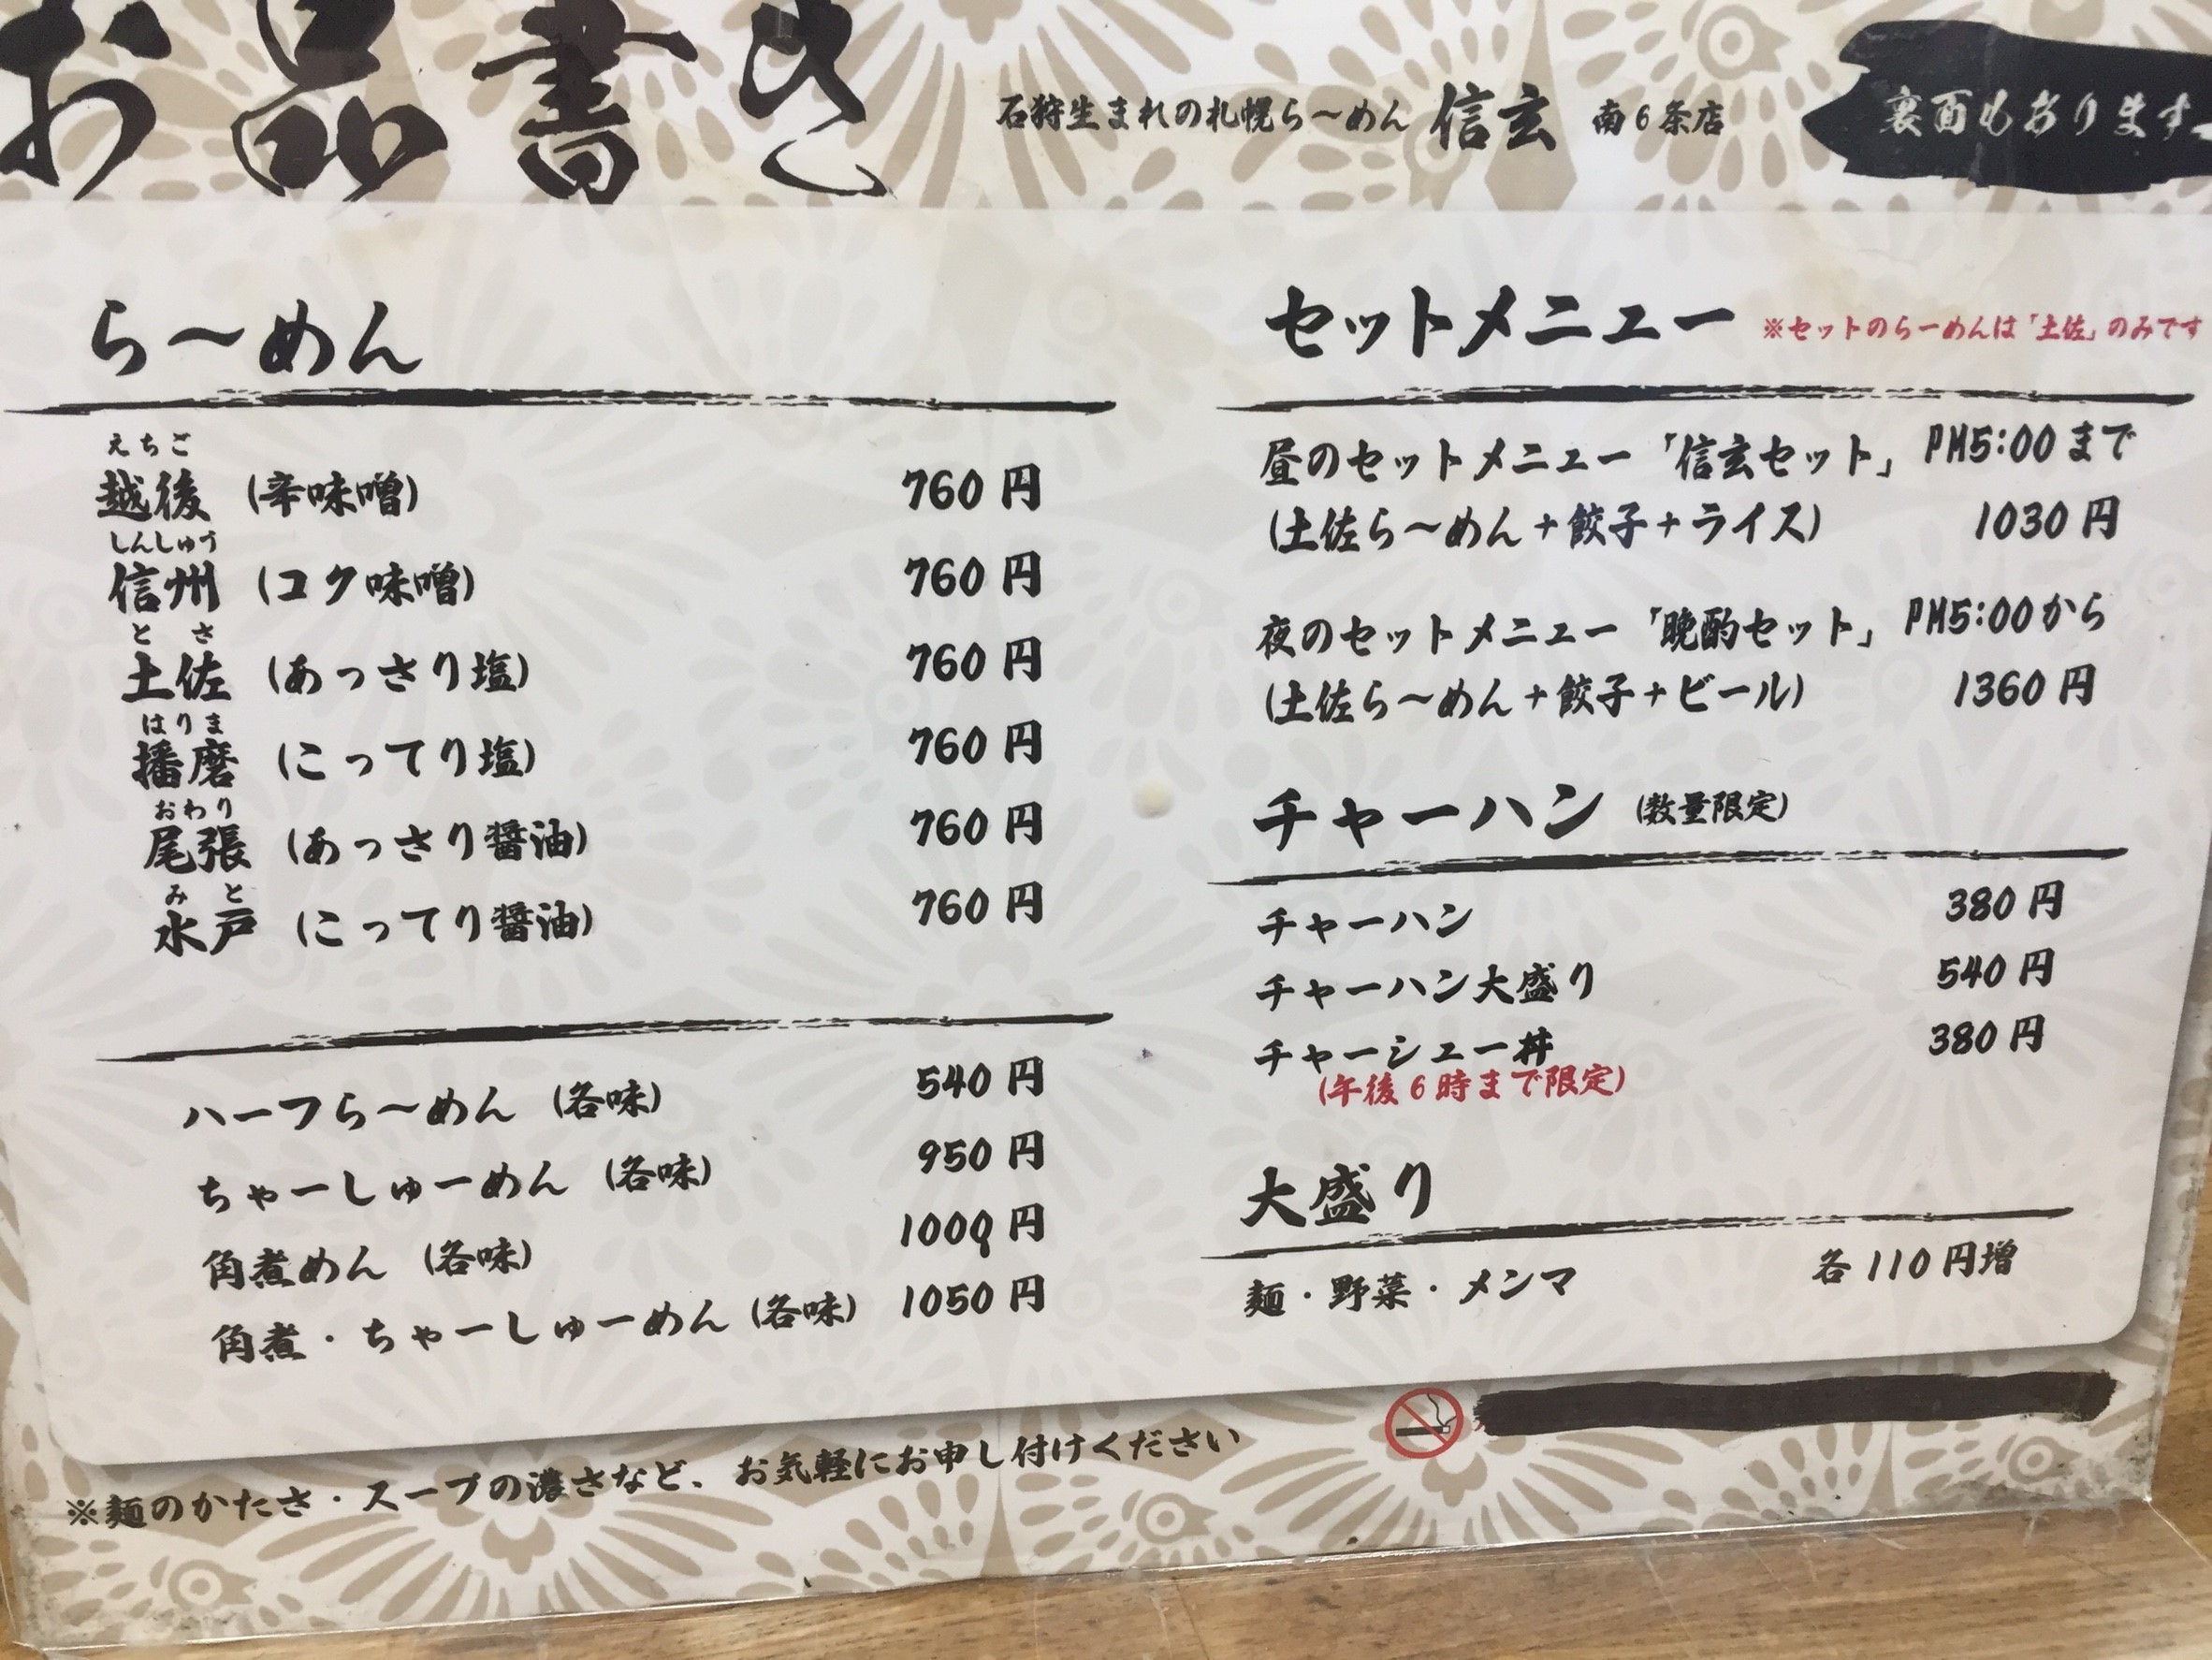 お品書き
石狩生まれの札幌ら〜めん 信玄 南6条店
裏面もあります
ら〜めん
えちご
越後 (辛味噌) 760円
しんしゅう
信州 (コク味噌) 760円
とさ
土佐 (あっさり塩) 760円
はりま
播磨 (こってり塩) 760円
おわり
尾張 (あっさり醤油) 760円
みと
水戸 (こってり醤油) 760円
ハーフら〜めん (各味) 540円
ちゃーしゅーめん (各味) 950円
角煮めん (各味) 1000円
角煮・ちゃーしゅーめん (各味) 1050円
セットメニュー ※セットのらーめんは「土佐」のみです
昼のセットメニュー「信玄セット」 PM5:00まで
(土佐ら〜めん+餃子+ライス) 1030円
夜のセットメニュー「晩酌セット」 PM5:00から
(土佐ら〜めん+餃子+ビール) 1360円
チャーハン (数量限定)
チャーハン 380円
チャーハン大盛り 540円
チャーシュー丼 380円
(午後6時まで限定)
大盛り
麺・野菜・メンマ 各110円増
※麺のかたさ・スープの濃さなど、お気軽にお申し付けください